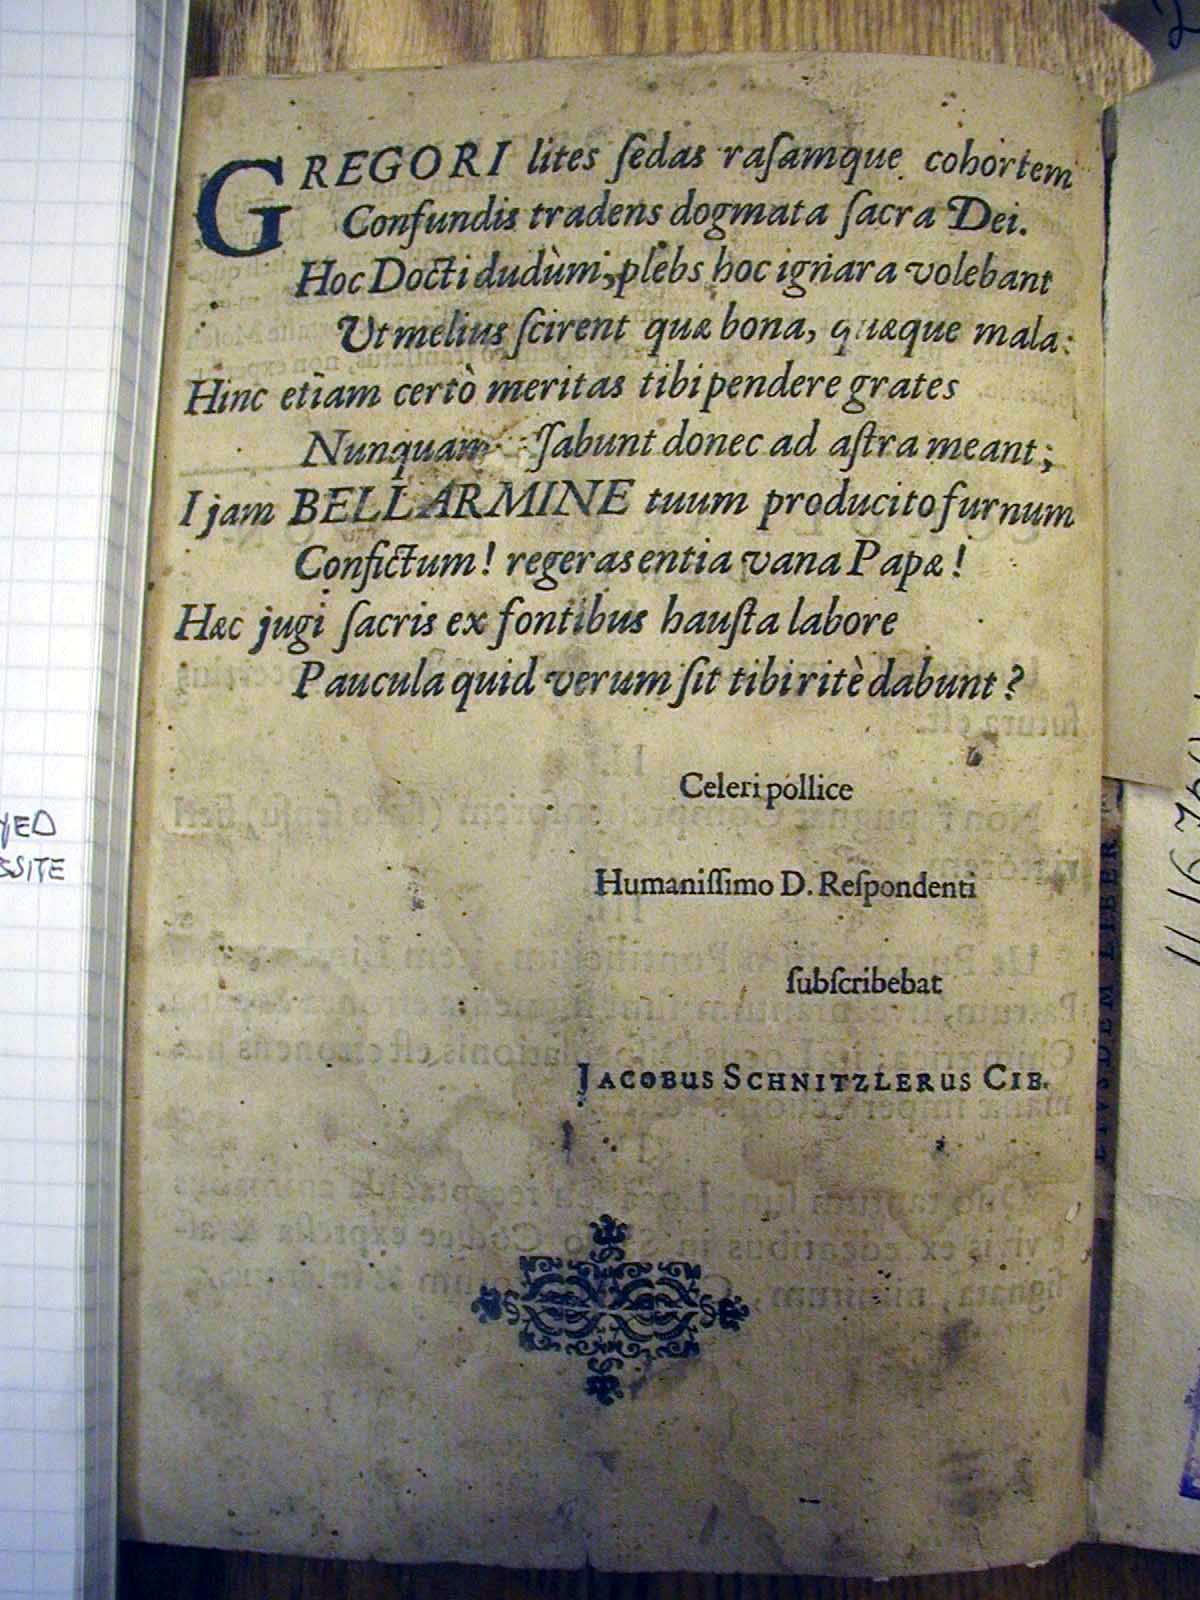 GREGORI lites ſedas raſamque cohortem
Confundis tradens dogmata ſacra Dei.
Hoc Docti dudùm; plebs hoc ignara volebant
Ut melius ſcirent quæ bona, quæque mala:
Hinc etiam certò meritas tibi pendere grates
Nunquam donec ad aſtra meant;
I jam BELLARMINE tuum producito furnum
Confictum! regeras entia vana Papæ!
Hæc jugi ſacris ex fontibus hauſta labore
Paucula quid verum ſit tibi ritè dabunt?
Celeri pollice
Humaniſſimo D. Reſpondenti
ſubſcribebat
JACOBUS SCHNITZLERUS CIB.
YED
SSITE
EIVSDEM LIBER